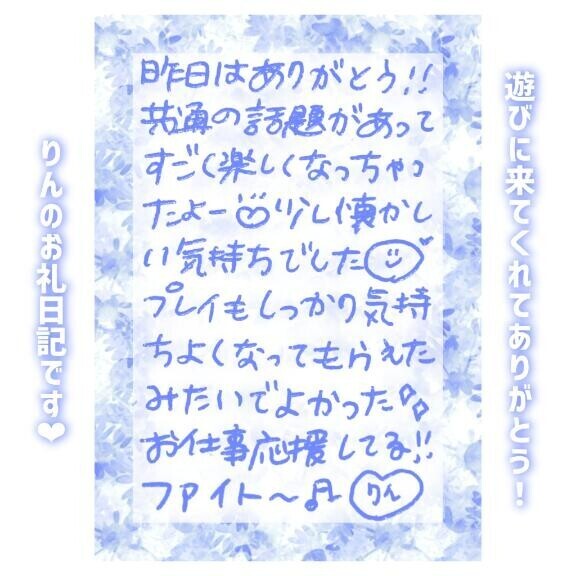 遊びに来てくれてありがとう！
昨日はありがとう!!
共通の話題があって
すごく楽しくなっちゃっ
たよー♡少し懐かし
い気持ちでした
プレイもしっかり気持
ちよくなってもらえた
みたいでよかった
お仕事応援してる!!
ファイト〜♬ りん
りんのお礼日記です❤